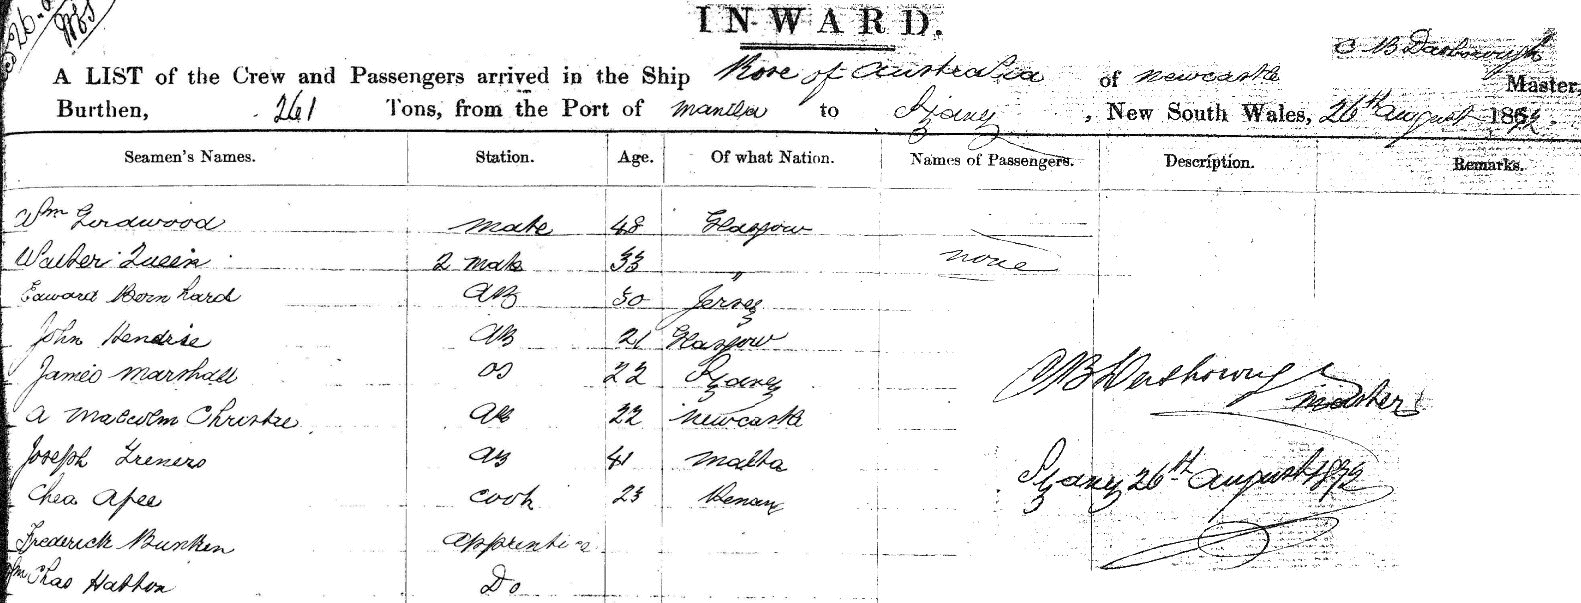 INWARD.
C B Dasborough
A LIST of the Crew and Passengers arrived in the Ship Rose of Australia of Newcastle Master,
Burthen, 261 Tons, from the Port of Manilla to Sydney, New South Wales, 26th August 1872.
Seamen's Names. Station. Age. Of what Nation. Names of Passengers. Description. Remarks.
Wm Lordwood mate 48 Glasgow
Walter Quein 2 mate 33 " none
Edward Bernhard AB 30 Jersey
John Hendrie AB 21 Glasgow
James Marshall OS 22 Sydney
C B Dasborough
master
A Malcolm Christie AB 22 Newcastle
Joseph Greners AB 41 Malta
Sydney 26th August 1872
Chea Apee cook 23 Penang
Frederick Bunken apprentice
Wm Chas Hatton Do